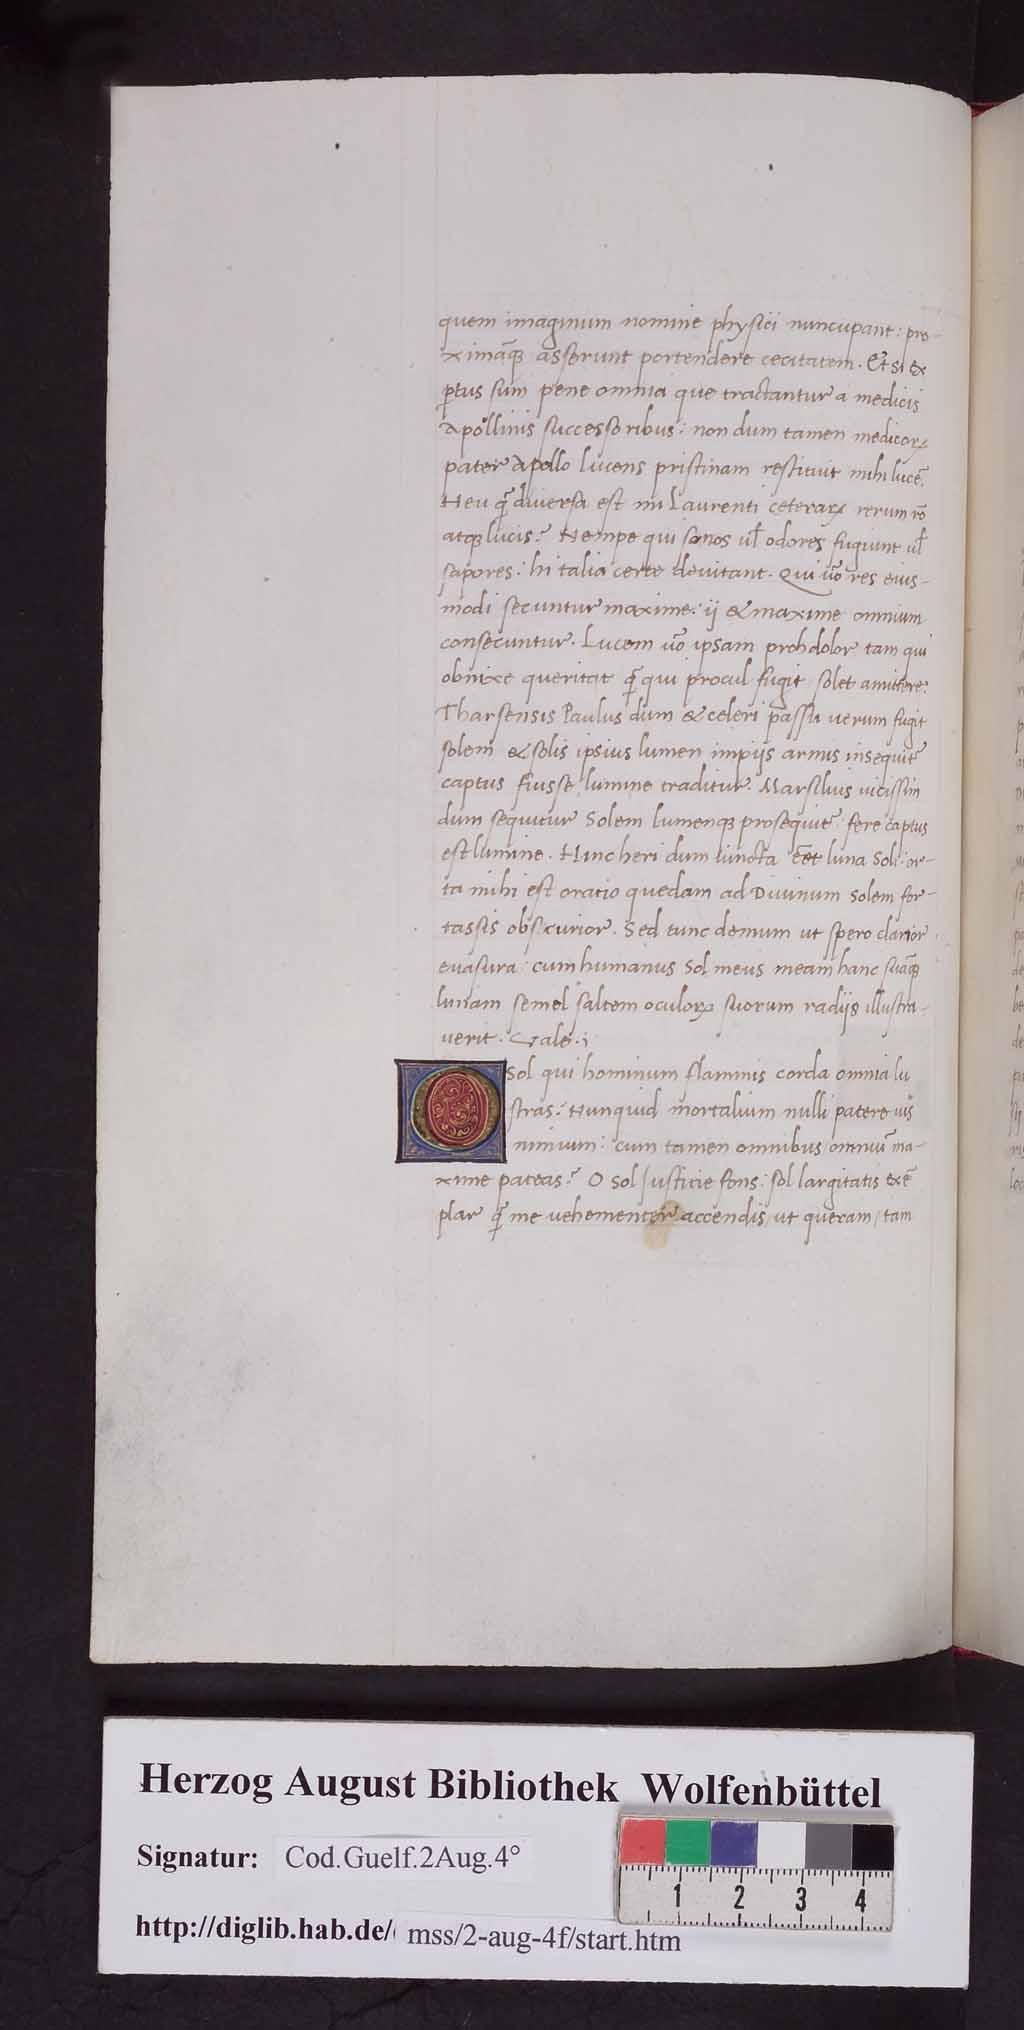 quem imaginum nomine physici nuncupant: pro-
ximāq̃ asserunt portendere cecitatem. Et si ex
ꝑtus sum pene omnia que tractantur a medicis
Apollinis successoribus: non dum tamen medicoꝝ
pater Apollo livens pristinam restituit mihi lucē.
Heu q̃ diversa est mi Laurenti ceteraꝝ rerum rō
atq̃ lucis? Nempe qui sonos ul̃ odores fugiunt ul̃
sapores: hi talia certe devitant. Qui uo᷃ res eius-
modi secuntur maxime: ij & maxime omnium
consecuntur. Lucem uo᷃ ipsam proh dolor tam qui
obnixe queritat q̃ qui procul fugit solet amittere.
Tharsensis Paulus dum & celeri passu uerum fugit
solem & solis ipsius lumen impijs armis insequit᷃
captus fuisse lumine traditur. Marsilius uicissim
dum sequitur Solem lumenq̃ prosequit᷃ fere captus
est lumine. Hinc heri dum iuncta eēt luna Soli: or-
ta mihi est oratio quedam ad Divinum Solem for-
tassis obscurior. Sed tunc demum ut spero clarior
euasura: cum humanus Sol meus meam hanc suāq̃
lunam semel saltem oculoꝝ suorum radijs illustra-
uerit. Vale.
O Sol qui hominum flammis corda omnia lu
stras: Nunquid mortalium nulli patere uis
nimium: cum tamen omnibus omniū ma-
xime pateas? O Sol Iusticie fons: sol largitatis exē
plar q̃ me uehementer accendis, ut queram, tam
Herzog August Bibliothek Wolfenbüttel
Signatur: Cod.Guelf.2Aug.4°
1 2 3 4
http://diglib.hab.de/ mss/2-aug-4f/start.htm